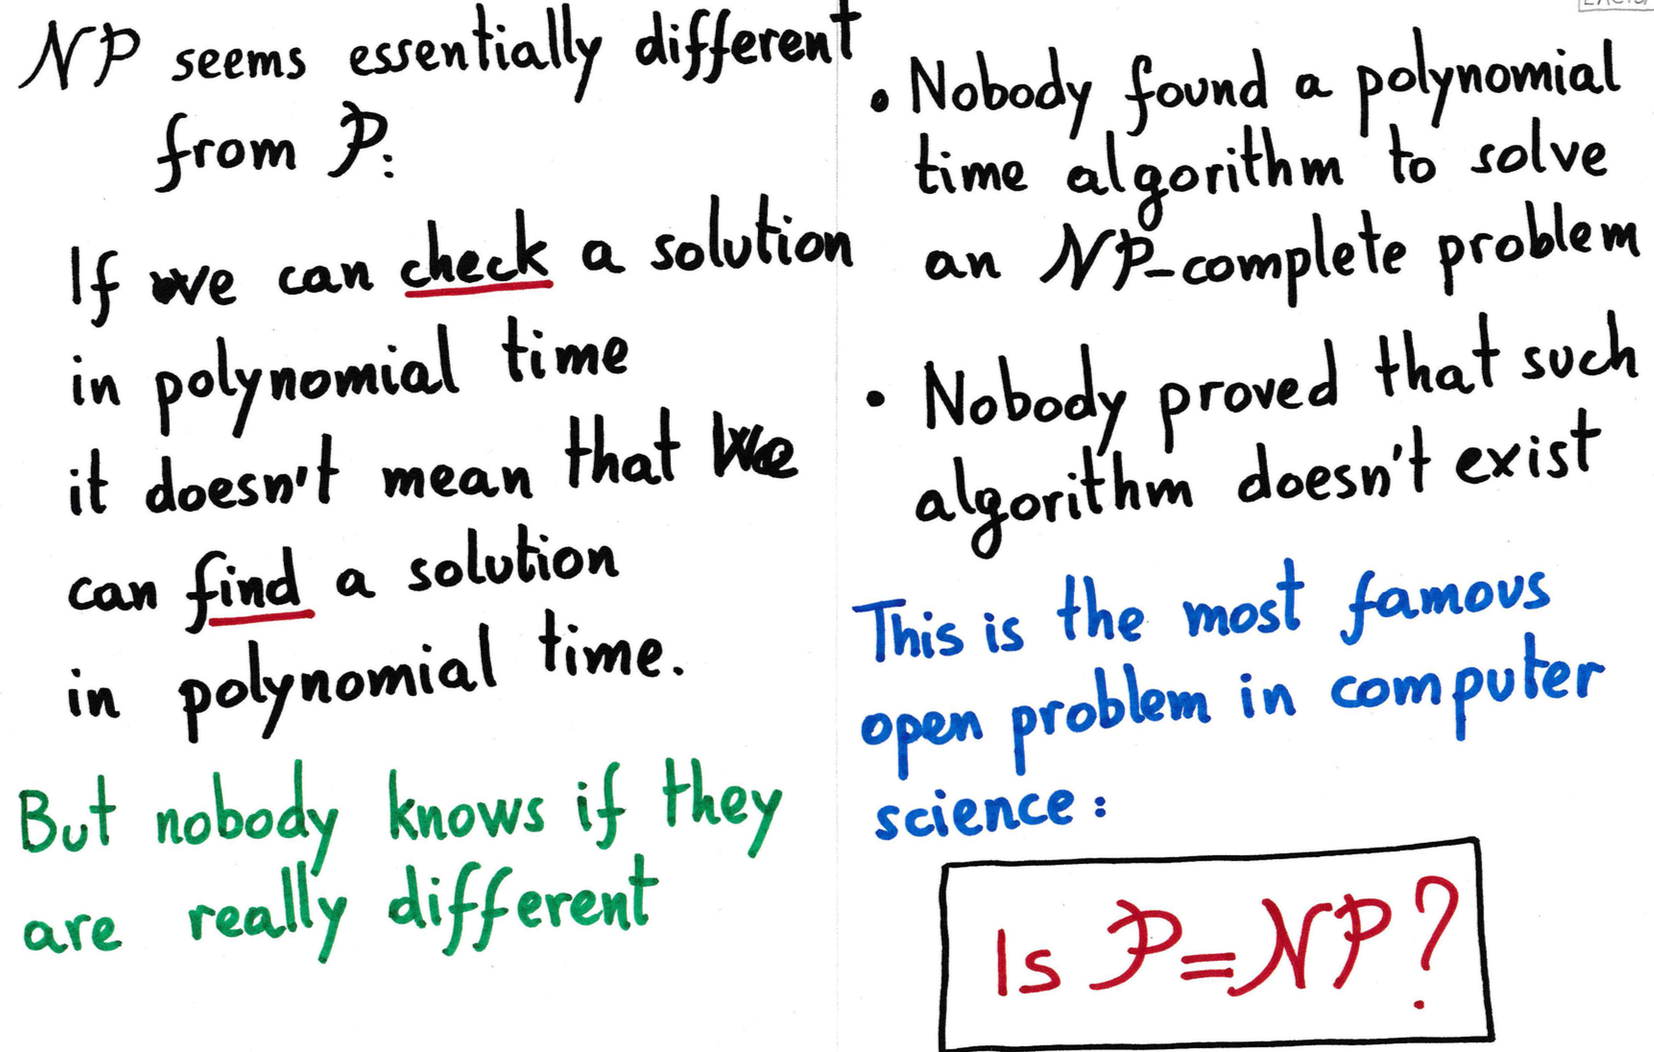 NP seems essentially different
from P:
If we can check a solution
in polynomial time
it doesn't mean that we
can find a solution
in polynomial time.
But nobody knows if they
are really different
• Nobody found a polynomial
time algorithm to solve
an NP-complete problem
• Nobody proved that such
algorithm doesn't exist
This is the most famous
open problem in computer
science:
Is P=NP?